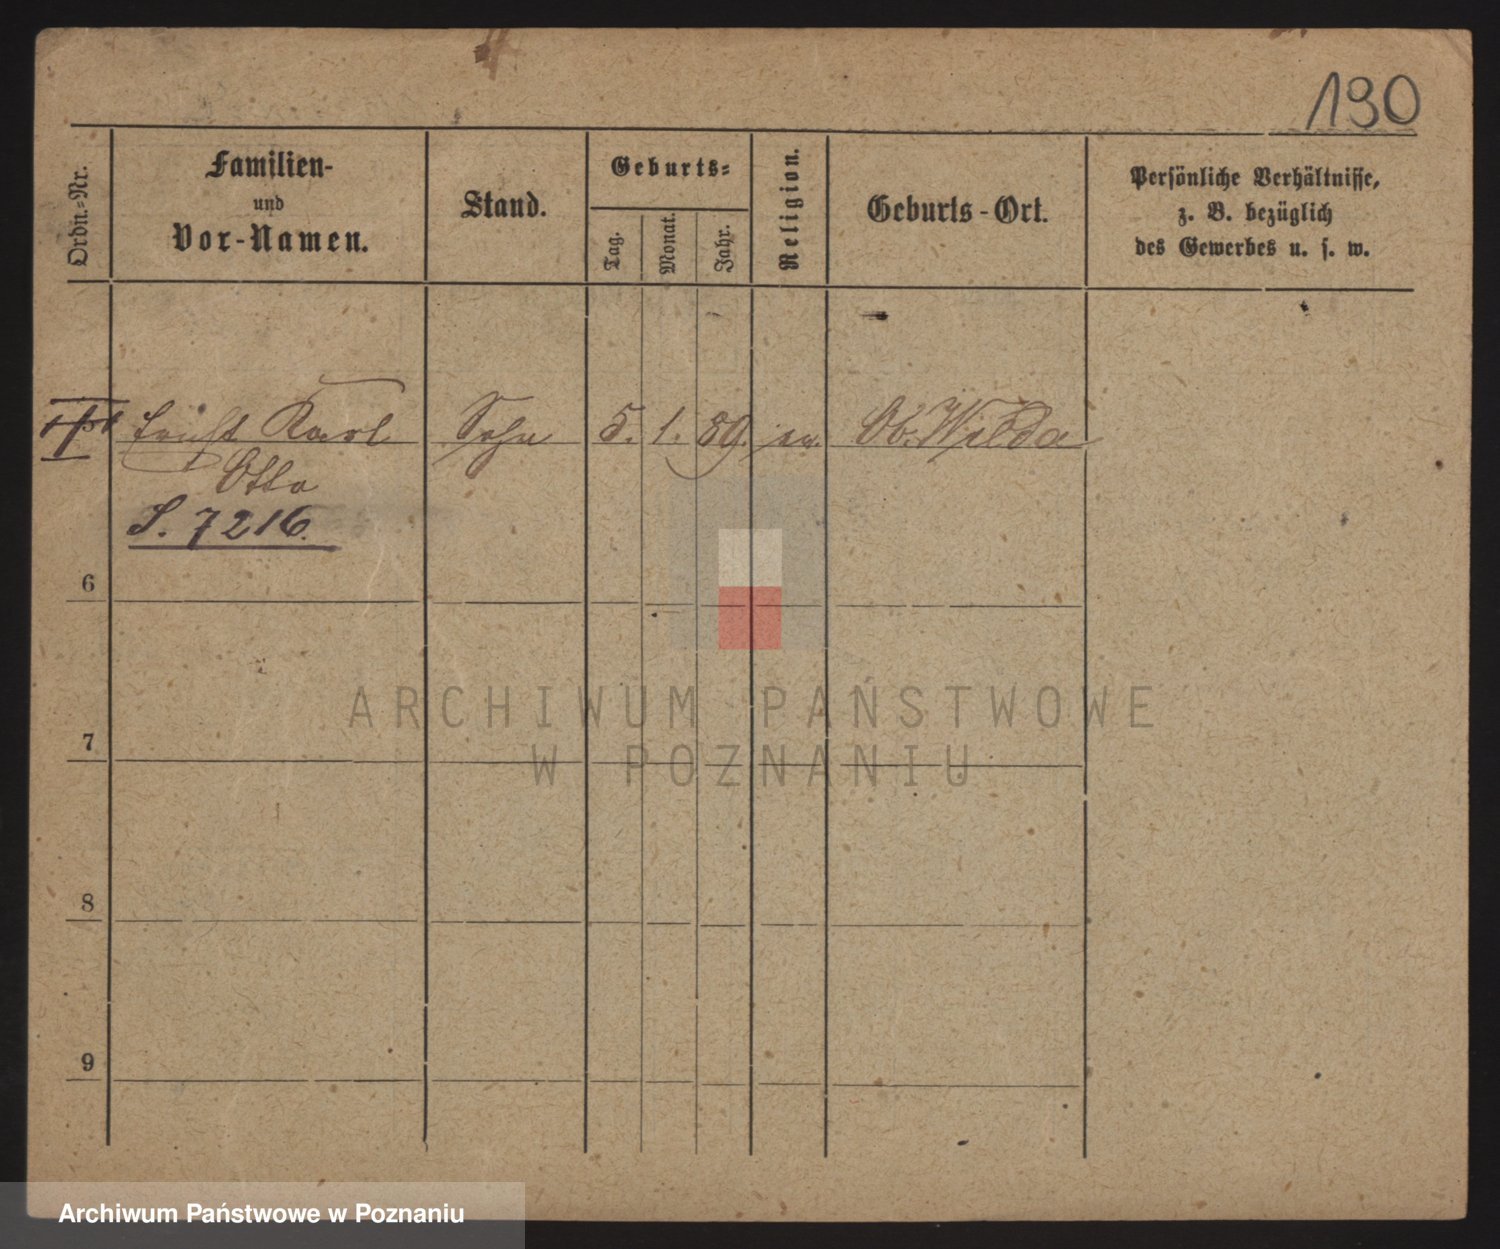 190
Ordn.-Nr.
Familien-
und
Vor-Namen.
Stand.
Geburts-
Tag.
Monat.
Jahr.
Religion.
Geburts-Ort.
Persönliche Verhältnisse,
z. B. bezüglich
des Gewerbes u. s. w.
Karl Sohn 5. 1. 89. ev. Ob. Wilda
Otto
S. 7216.
6
7
8
9
ARCHIWUM PAŃSTWOWE
W POZNANIU
Archiwum Państwowe w Poznaniu